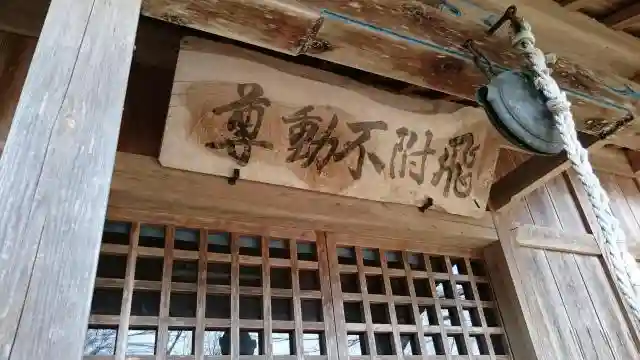 飛附不動尊